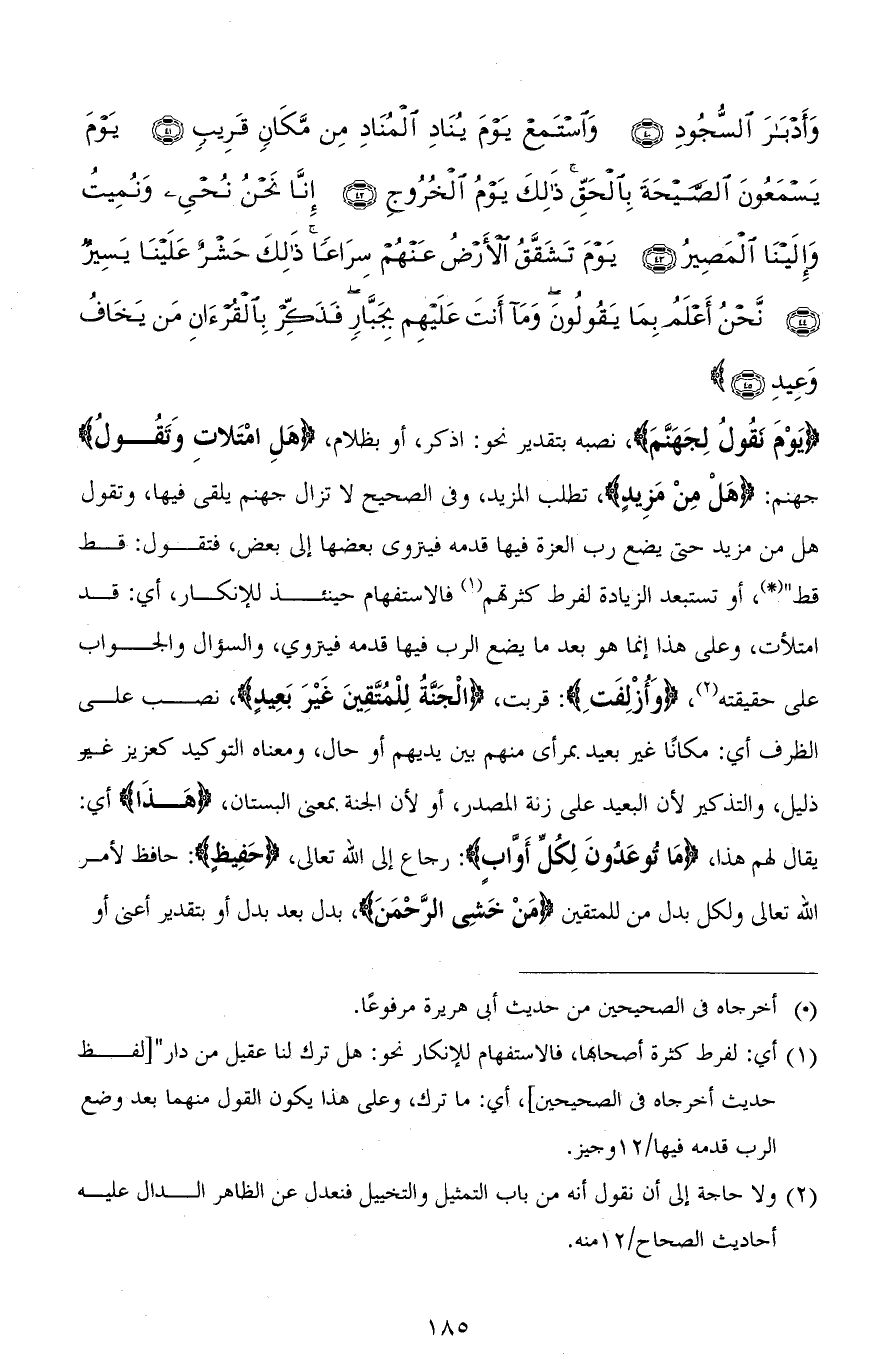 وَأَدْبَٰرَ ٱلسُّجُودِ ٤٠ وَٱسْتَمِعْ يَوْمَ يُنَادِ ٱلْمُنَادِ مِن مَّكَانٍ قَرِيبٍ ٤١ يَوْمَ
يَسْمَعُونَ ٱلصَّيْحَةَ بِٱلْحَقِّ ۚ ذَٰلِكَ يَوْمُ ٱلْخُرُوجِ ٤٢ إِنَّا نَحْنُ نُحْىِۦ وَنُمِيتُ
وَإِلَيْنَا ٱلْمَصِيرُ ٤٣ يَوْمَ تَشَقَّقُ ٱلْأَرْضُ عَنْهُمْ سِرَاعًا ۚ ذَٰلِكَ حَشْرٌ عَلَيْنَا يَسِيرٌ
٤٤ نَّحْنُ أَعْلَمُ بِمَا يَقُولُونَ ۖ وَمَآ أَنتَ عَلَيْهِم بِجَبَّارٍ ۖ فَذَكِّرْ بِٱلْقُرْءَانِ مَن يَخَافُ
وَعِيدِ ٤٥ ﴾
﴿يَوْمَ نَقُولُ لِجَهَنَّمَ﴾، نصبه بتقدير نحو: اذكر، أو بظلام، ﴿هَلِ امْتَلات وَتَقُولُ﴾
جهنم: ﴿هَلْ مِنْ مَزِيدٍ﴾، تطلب المزيد، وفى الصحيح لا تزال جهنم يلقى فيها، وتقول
هل من مزيد حتى يضع رب العزة فيها قدمه فينزوى بعضها إلى بعض، فتقول: قط
قط"(*)، أو تستبعد الزيادة لفرط كثرتهم(١) فالاستفهام حينئذ للإنكار، أي: قد
امتلأت، وعلى هذا إنما هو بعد ما يضع الرب فيها قدمه فينزوي، والسؤال والجواب
على حقيقته(٢)، ﴿وَأُزْلِفَتِ﴾: قربت، ﴿الْجَنَّةُ لِلْمُتَّقِينَ غَيْرَ بَعِيدٍ﴾، نصب على
الظرف أي: مكانًا غير بعيد بمرأى منهم بين يديهم أو حال، ومعناه التوكيد كعزيز غير
ذليل، والتذكير لأن البعيد على زنة المصدر، أو لأن الجنة بمعنى البستان، ﴿هَذَا﴾ أي:
يقال لهم هذا، ﴿مَا تُوعَدُونَ لِكُلِّ أَوَّابٍ﴾: رجاع إلى الله تعالى، ﴿حَفِيظٍ﴾: حافظ لأمر
الله تعالى ولكل بدل من للمتقين ﴿مَنْ خَشِى الرَّحْمَنَ﴾، بدل بعد بدل أو بتقدير أعنى أو
(*) أخرجاه فى الصحيحين من حديث أبى هريرة مرفوعًا.
(١) أي: لفرط كثرة أصحابها، فالاستفهام للإنكار نحو: هل ترك لنا عقيل من دار"[لفظ
حديث أخرجاه فى الصحيحين]، أي: ما ترك، وعلى هذا يكون القول منهما بعد وضع
الرب قدمه فيها/١٢وجيز.
(٢) ولا حاجة إلى أن نقول أنه من باب التمثيل والتخييل فنعدل عن الظاهر الدال عليه
أحاديث الصحاح/١٢منه.
١٨٥